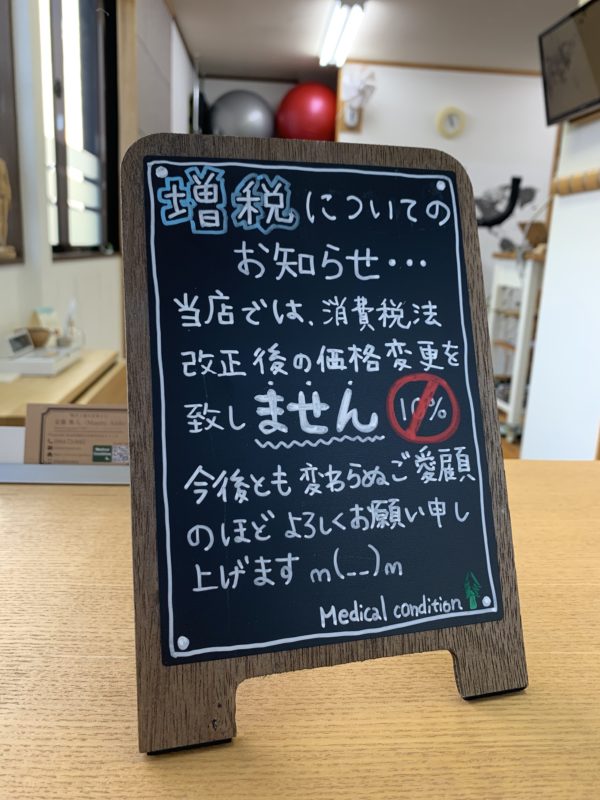 増税についての
お知らせ・・・
当店では、消費税法
改正後の価格変更を
致しません 10%
今後とも変わらぬご愛顧
のほどよろしくお願い申し
上げます m(__)m
Medical condition